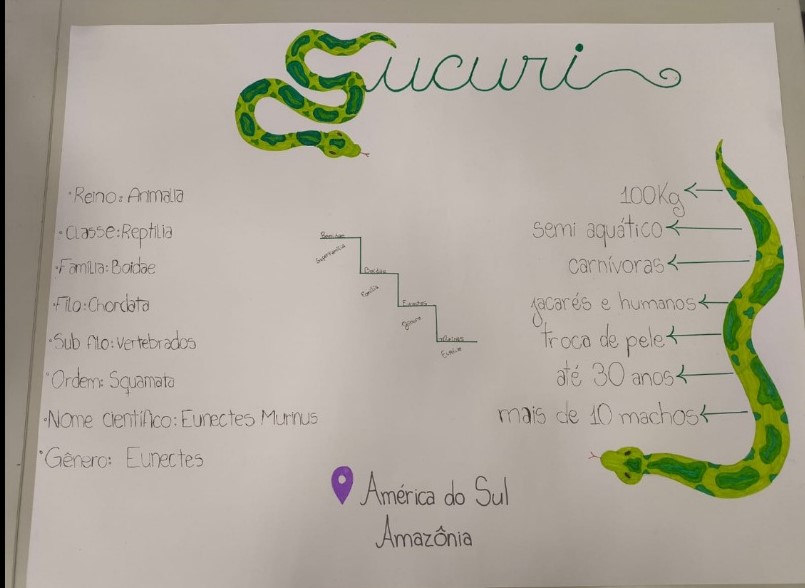 Sucuri
·Reino: Animalia
·Classe: Reptilia
·Família: Boidae
·Filo: Chordata
·Sub filo: vertebrados
·Ordem: Squamata
·Nome científico: Eunectes Murinus
·Gênero: Eunectes
Superfamília
Família
Eunectes
Gênero
100Kg
semi aquático
carnívoras
jacarés e humanos
troca de pele
até 30 anos
mais de 10 machos
América do Sul
Amazônia